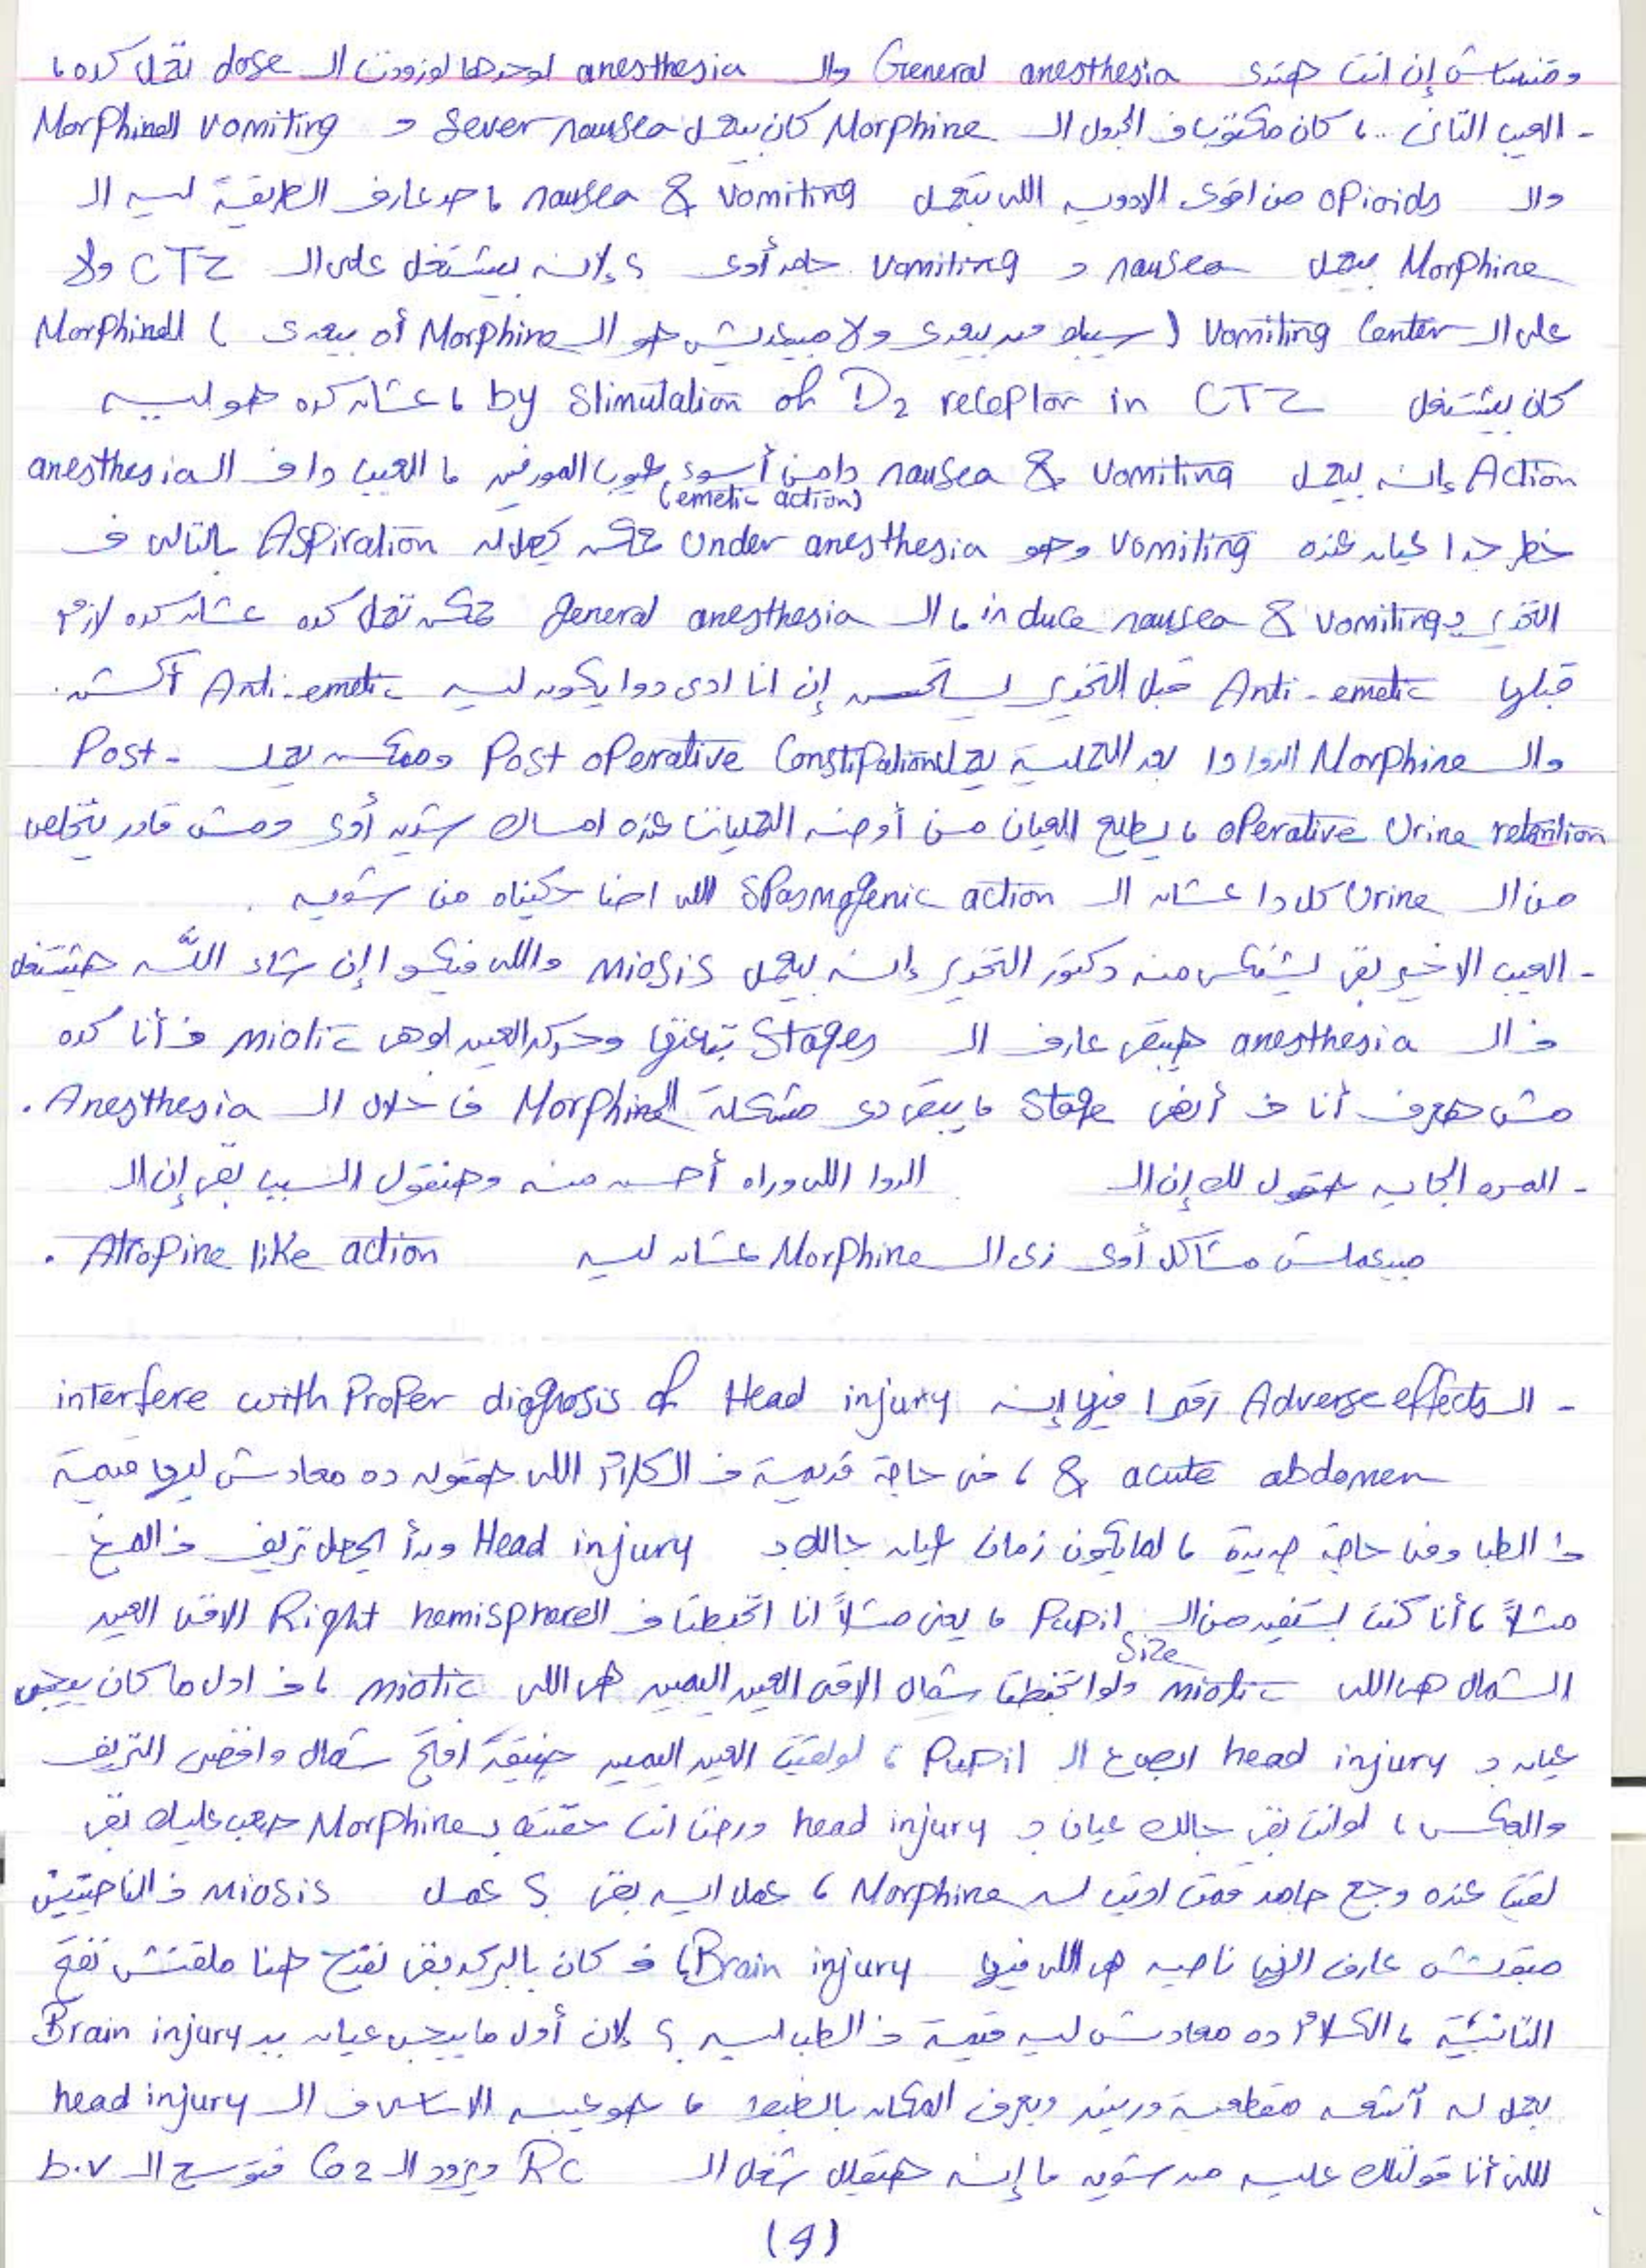 ومتنساش إن انت هتدى General anesthesia وال anesthesia لوحدها لوزودت ال dose تعمل كده ،
- العيب التانى .. ، كان مكتوب ف الجدول ال Morphine كان بيعمل Sever nausea و vomiting ال Morphine
وال opioids من اقوى الادوية اللى بتعمل nausea & vomiting ، حد عارف الطريقة ليه ال
Morphine بيعمل nausea و vomiting جامد أوى ؟ لإنه بيشتغل على ال CTZ ولا
على ال Vomiting Center ( سيبك من بيعدى ولا مبيعديش هو ال Morphine أه بيعدى ) ال Morphine
كان بيشتغل by Stimulation of D2 receptor in CTZ ، عشان كده هو ليه
Action إنه بيعمل nausea & vomiting دا من أسوء عيوب المورفين ، العيب دا ف ال anesthesia
(emetic action)
خطر جدا عيان عنده vomiting وهو Under anesthesia ممكن يحصله Aspiration بالتالى ف
التخدير و induce nausea & vomiting ، ال general anesthesia ممكن تعمل كده عشان كده لازم
قبلها Anti-emetic قبل التخدير يستحسن إن انا ادى دوا يكون ليه Anti-emetic أكشن.
وال Morphine الدوا دا بعد العملية يعمل Post operative Constipation وممكن يعمل Post-
operative Urine retention ، يطلع العيان من أوضه العمليات عنده امساك شديد أوى ومش قادر يتخلص
من ال Urine كل دا عشان ال Spasmogenic action اللى احنا حكيناه من شويه .
- العيب الاخير بقى يشتكى منه دكتور التخدير إنه بيعمل miosis واللى فيكوا إن شاء اللّه هيشتغل
ف ال anesthesia هيبقى عارف ال Stages بتاعتها وحركه العين لو هى miotic ف أنا كده
مش هعرف أنا ف أنهى Stage ، يبقى دى مشكلة ال Morphine ف خلال ال Anesthesia .
- المره الجايه هنقول لك إن ال الدوا اللى وراه أحسن منه وهنقول السبب بقى إن ال
مبيعملش مشاكل أوى زى ال Morphine عشان ليه Atropine like action .
- ال Adverse effects رقم 1 فيها إنه interfere with Proper diagnosis of Head injury
& acute abdomen ، فى حاجة قديمة ف الكلام اللى هقوله ده معادش ليها قيمة
ف الطب وفى حاجة جديدة ، لما يكون زمان عيان جالك ب Head injury وبدأ يحصل نزيف ف المخ
مثلاً ، أنا كنت بستفيد من ال Pupil ، يعنى مثلاً انا اتخبطت ف ال Right hemisphere الاقى العين
Size
الشمال هى اللى miotic ولو اتخبطت شمال الاقى العين اليمين هى اللى miotic ، ف اول ما كان بيجى
عيان ب head injury ابص ع ال Pupil ، لو لقيت العين اليمين ضيقة افتح شمال وافضى النزيف
والعكس ، لو انت بقى جالك عيان ب head injury ورحت انت حقنته ب Morphine صعب عليك بقى
لقيت عنده وجع جامد قمت اديت له Morphine ، عمل ايه بقى ؟ عمل miosis ف الناحيتين
مبقتش عارف انهى ناحيه هى اللى فيها Brain injury ، ف كان بالبركه بقى نفتح هنا ملقتش نفتح
التانيّة ، الكلام ده معادش ليه قيمة ف الطب ليه ؟ لان أول ما بيجى عيان ب Brain injury
بعمل له آشعه مقطعية ورنين وبعرف المكان بالظبط ، هو عيبه الاساسى ف ال head injury
اللى أنا قولتلك عليه من شويه ، إنه هيقلل شغل ال RC ويزود ال Co2 فتوسع ال b.v
(9)